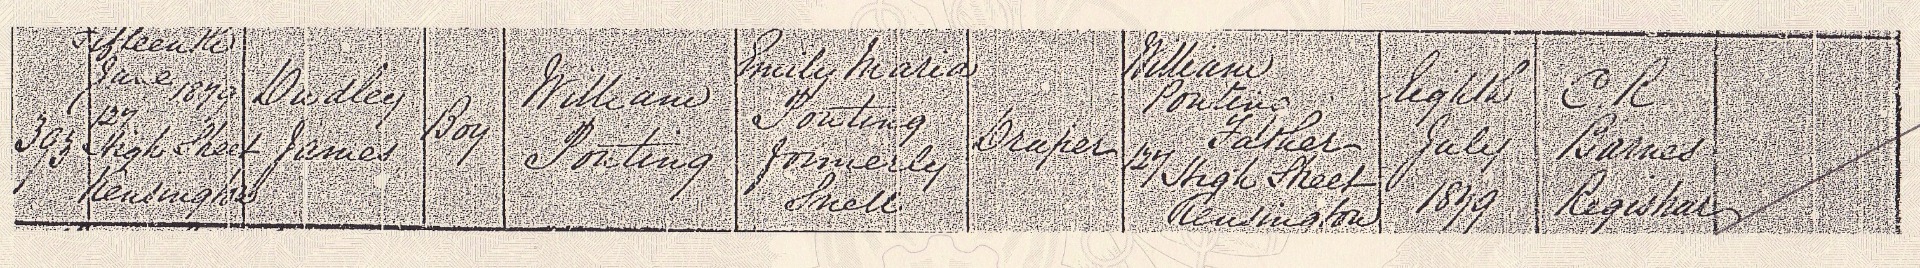 393
Fifteenth
June 1879
127
High Street
Kensington
Dudley
James
Boy
William
Ponting
Emily Maria
Ponting
formerly
Snell
Draper
William
Ponting
Father
127
High Street
Kensington
Eighth
July
1879
C. R.
Barnes
Registrar